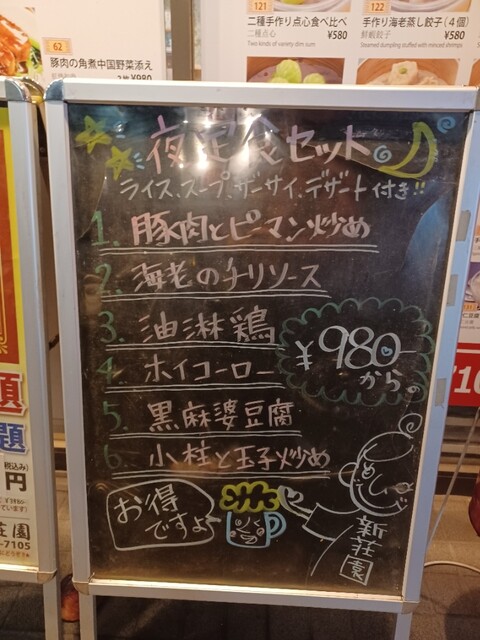 121
二種手作り点心食べ比べ
二種点心
¥580
Two kinds of variety dim sum
122
手作り海老蒸し餃子(4個)
鮮蝦餃子
¥580
Steamed dumpling stuffed with minced shrimps
62
豚肉の角煮中国野菜添え
¥980
夜定食セット
ライス、スープ、ザーサイ、デザート付き!!
1. 豚肉とピーマン炒め
2. 海老のチリソース
3. 油淋鶏
4. ホイコーロー
5. 黒麻婆豆腐
6. 小柱と玉子炒め
¥980
から
お得
ですよ
新荘園
題
円
荘園
-7105